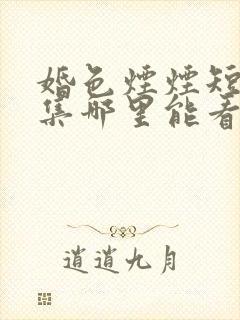 婚色煙煙短
集哪里能看
逍逍九月